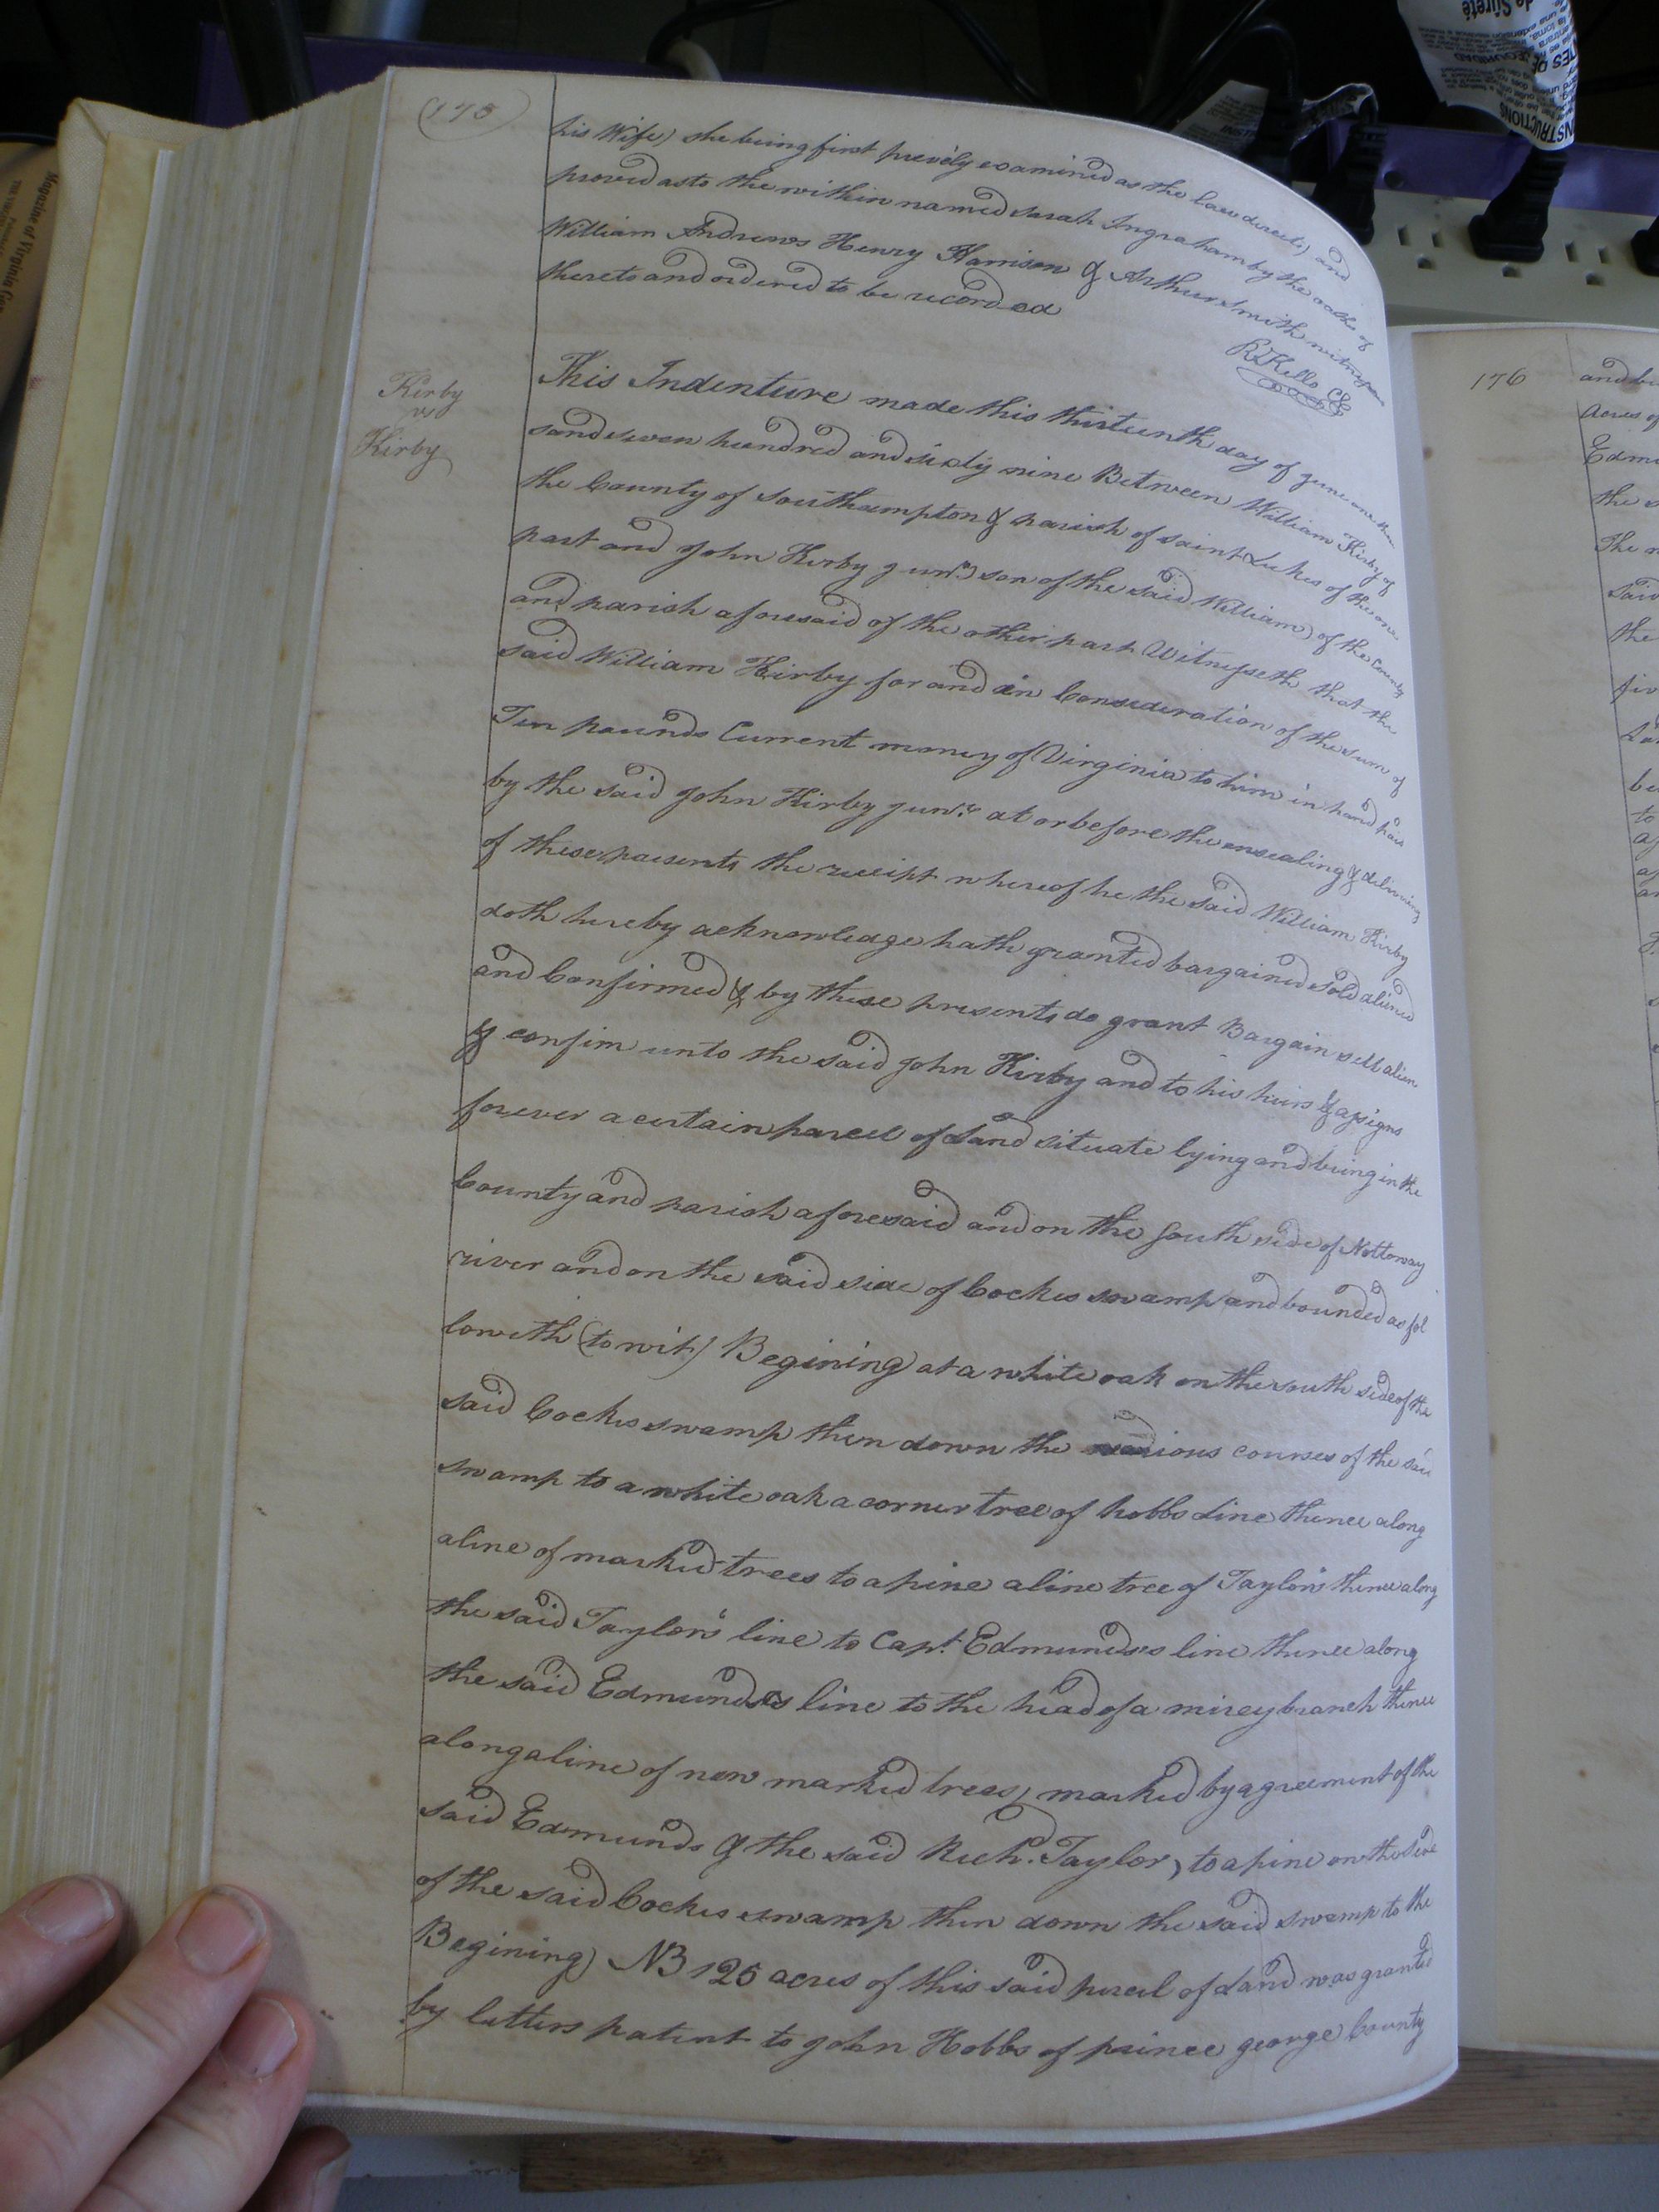 (175)
his Wife) she being first previly examined as the law directs) and
proved as to the within named Sarah Ingraham by the oaths of
William Andrews Henry Harrison & Arthur Smith witnesses
thereto and ordered to be recorded
R Kello CC
Kirby
vs
Kirby
This Indenture made this thirteenth day of June one thou
sand seven hundred and sixty nine Between William Kirby of
the County of Southampton & parish of saint Lukes of the one
part and John Kirby junr. son of the said William) of the County
and parish aforesaid of the other part Witnesseth that the
said William Kirby for and in Consideration of the sum of
Ten pounds Current money of Virginia to him in hand paid
by the said John Kirby junr. at or before the ensealing & delivering
of these presents the receipt whereof he the said William Kirby
doth hereby acknowledge hath granted bargained Sold aliened
and Confirmed & by these presents do grant Bargain sell alien
& confim unto the said John Kirby and to his heirs & assigns
forever a certain parcel of Land situate lying and being in the
County and parish aforesaid and on the South side of Nottoway
river and on the said side of Cockes swamp and bounded as fol
loweth (to wit) Begining at a white oak on the south side of the
said Cockes swamp then down the various courses of the said
swamp to a white oak a corner tree of hobbs Line thence along
a line of marked trees to a pine a line tree of Taylor's thence along
the said Taylor's line to Capt. Edmunds's line thence along
the said Edmunds's line to the head of a mirey branch thence
along a line of new marked trees, marked by agreement of the
said Edmunds & the said Rich. Taylor, to a pine on the side
of the said Cockes swamp then down the said swamp to the
Begining) NB 125 acres of this said parcel of Land was granted
by letters patent to John Hobbs of prince george County
176
and
Acres of
the
The
Said
the
be
to
Magazine of Virginia
INSTRUCTIONS
de Sûreté